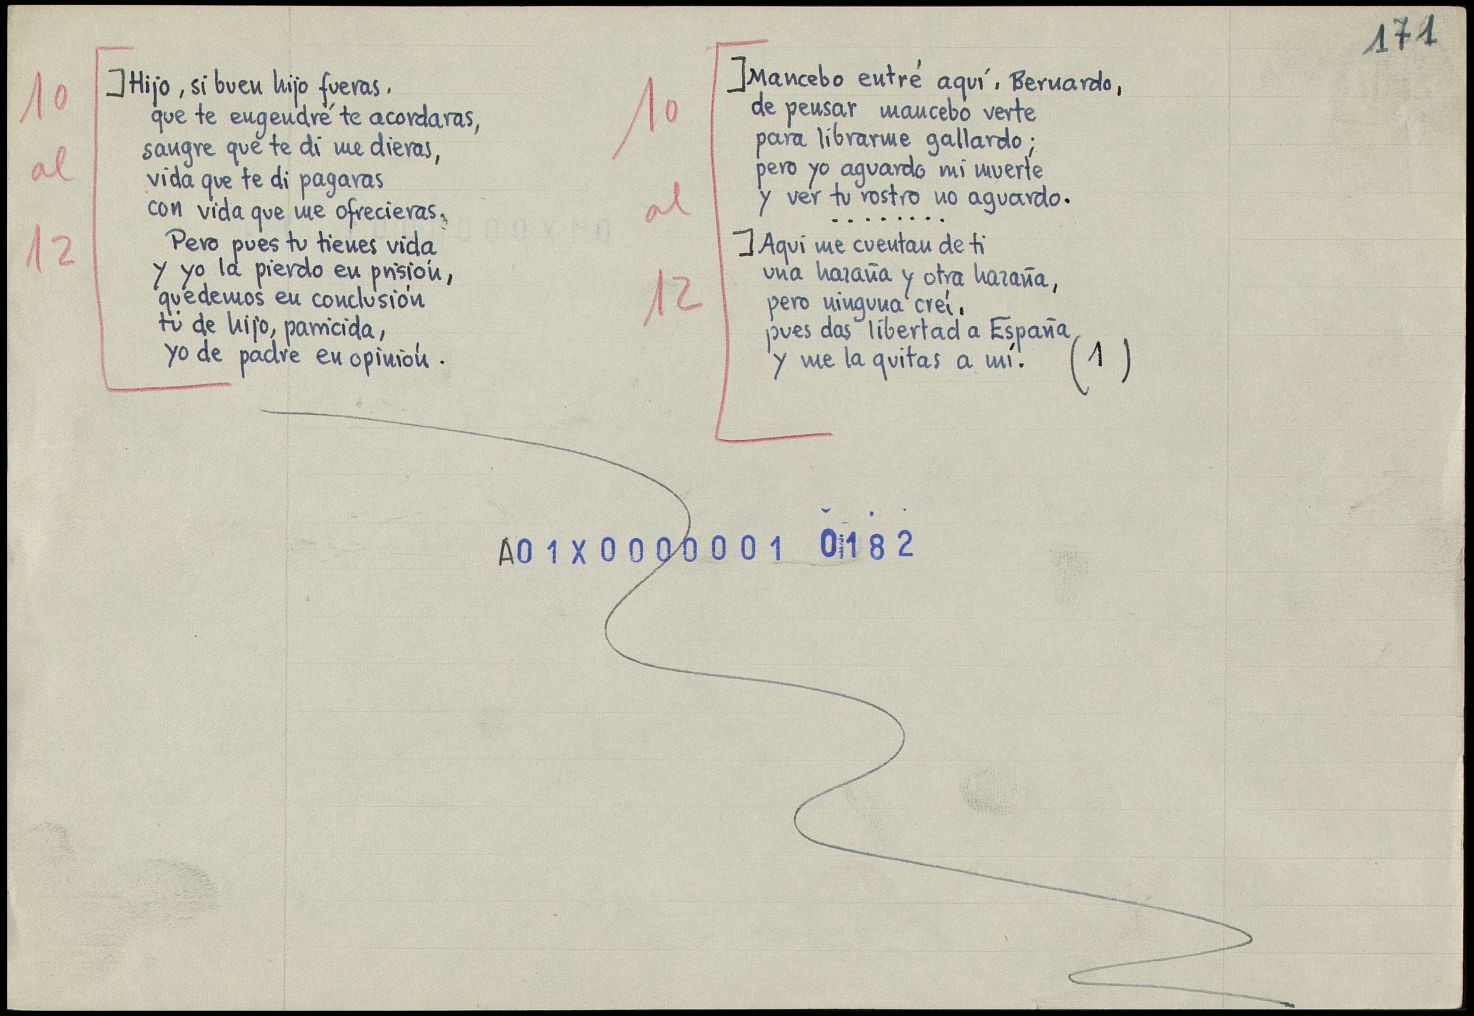 171
10
al
12
]Hijo, si buen hijo fueras.
que te engendré te acordaras,
sangre que te di me dieras,
vida que te di pagaras
con vida que me ofrecieras.
Pero pues tu tienes vida
y yo la pierdo en prisión,
quedemos en conclusión
tú de hijo, parricida,
yo de padre en opinión.
10
al
12
]Mancebo entré aquí, Bernardo,
de pensar mancebo verte
para librarme gallardo;
pero yo aguardo mi muerte
y ver tu rostro no aguardo.
.........
]Aqui me cuentan de ti
una hazaña y otra hazaña,
pero ninguna creí,
pues das libertad a España
y me la quitas a mí. (1)
A01X0000001 0182